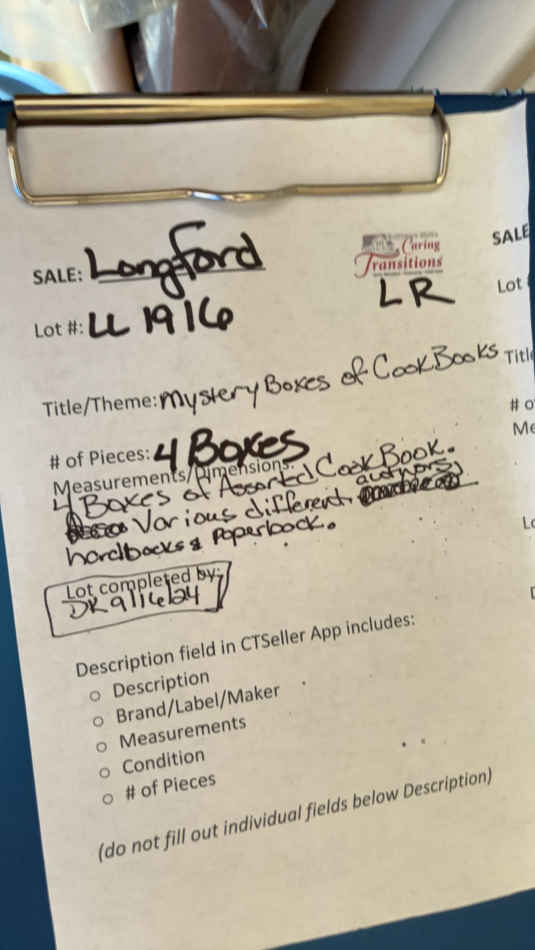 SALE: Longford
Caring
Transitions
SALE
LR
Lot
Lot #: LL 1916
Title/Theme: Mystery Boxes of CookBooks
Titl
# of Pieces: 4 Boxes
# o
Me
Measurements/Dimensions:
4 Boxes of Assorted CookBook.
Various different authors,
hardbacks & paperback.
Lot completed by:
DK 9/16/24
Description field in CTSeller App includes:
○ Description
○ Brand/Label/Maker
○ Measurements
○ Condition
○ # of Pieces
(do not fill out individual fields below Description)